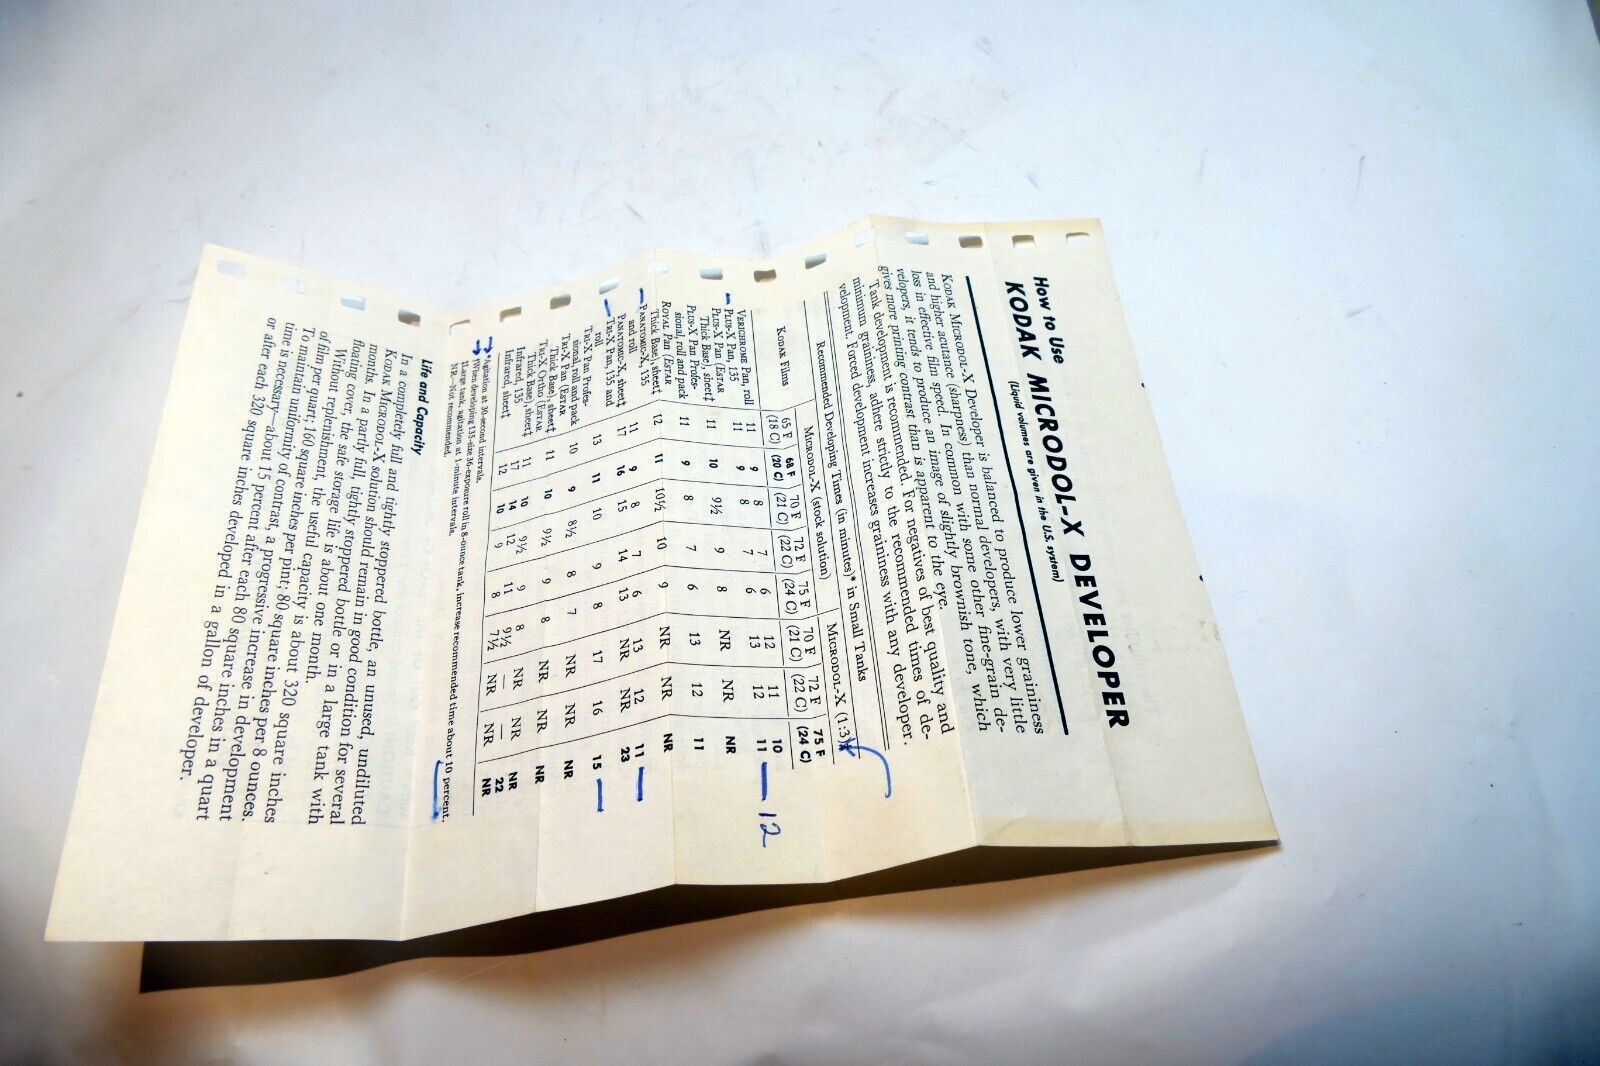 How to Use
KODAK MICRODOL-X DEVELOPER
(Liquid volumes are given in the U.S. system)
KODAK MICRODOL-X Developer is balanced to produce lower graininess
and higher acutance (sharpness) than normal developers, with very little
loss in effective film speed. In common with some other fine-grain de-
velopers, it tends to produce an image of slightly brownish tone, which
gives more printing contrast than is apparent to the eye.
Tank development is recommended. For negatives of best quality and
minimum graininess, adhere strictly to the recommended times of de-
velopment. Forced development increases graininess with any developer.
Recommended Developing Times (in minutes)* in Small Tanks
MICRODOL-X (stock solution) MICRODOL-X (1:3)†
KODAK Films 65 F 68 F 70 F 72 F 75 F 70 F 72 F 75 F
(18 C) (20 C) (21 C) (22 C) (24 C) (21 C) (22 C) (24 C)
VERICHROME Pan, roll 11 9 8 7 6 12 11 10
PLUS-X Pan, 135 11 9 8 7 6 13 12 11 — 12
PLUS-X Pan (ESTAR
Thick Base), sheet‡ 11 10 9½ 9 8 NR NR NR
PLUS-X Pan Profes-
sional, roll and pack 11 9 8 7 6 13 12 11
ROYAL Pan (ESTAR
Thick Base), sheet‡ 12 11 10½ 10 9 NR NR NR
PANATOMIC-X, 135
and roll 11 9 8 7 6 13 12 11
PANATOMIC-X, sheet‡ 17 16 15 14 13 NR NR 23
TRI-X Pan, 135 and
roll 13 11 10 9 8 17 16 15
TRI-X Pan Profes-
sional, roll and pack 10 9 8½ 8 7 NR NR NR
TRI-X Pan (ESTAR
Thick Base), sheet‡ 11 10 9½ 9 8 NR NR NR
TRI-X Ortho (ESTAR
Thick Base), sheet‡ 11 10 9½ 9 8 NR NR NR
Infrared, 135 17 14 12 11 9½ — — 22
Infrared, sheet‡ 12 10 9 8 7½ NR NR NR
*Agitation at 30-second intervals.
†When developing 135-size 36-exposure roll in 8-ounce tank, increase recommended time about 10 percent.
‡Large tank, agitation at 1-minute intervals.
NR—Not recommended.
Life and Capacity
In a completely full and tightly stoppered bottle, an unused, undiluted
KODAK MICRODOL-X solution should remain in good condition for several
months. In a partly full, tightly stoppered bottle or in a large tank with
floating cover, the safe storage life is about one month.
Without replenishment, the useful capacity is about 320 square inches
of film per quart; 160 square inches per pint; 80 square inches per 8 ounces.
To maintain uniformity of contrast, a progressive increase in development
time is necessary—about 15 percent after each 80 square inches in a quart
or after each 320 square inches developed in a gallon of developer.